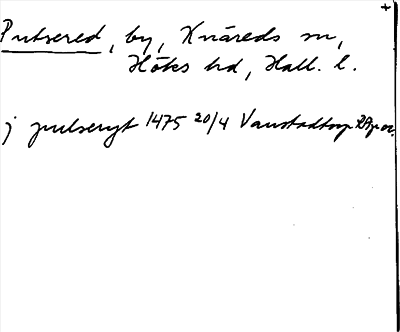 +
Putsered, by, Knäreds sn,
Höks hd, Hall. l.
j putseryt 1475 20/4 Vanstadtorp RApp or.